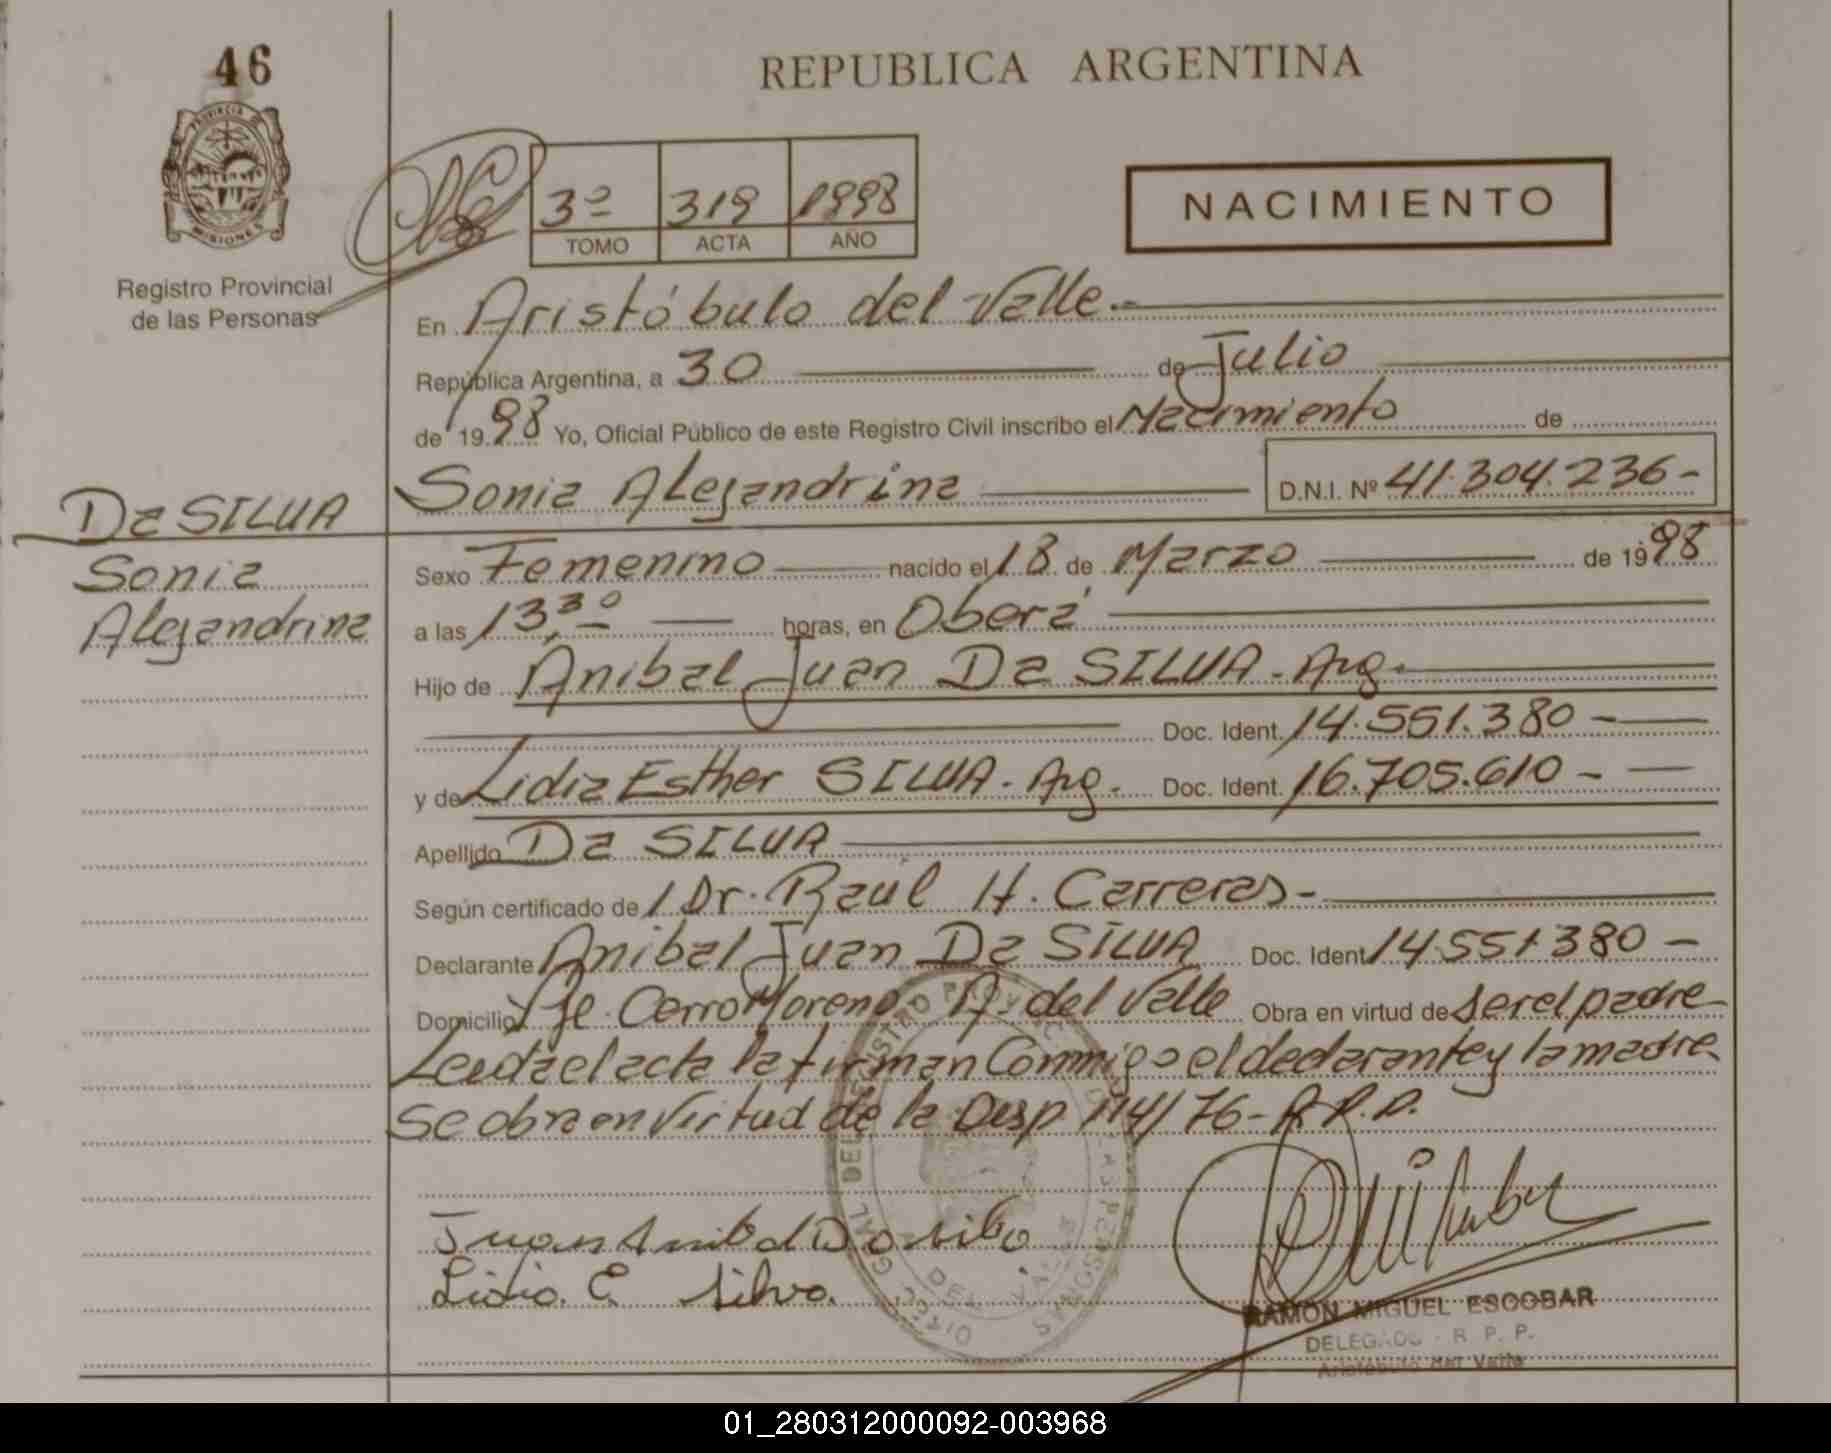 46
REPUBLICA ARGENTINA
PROVINCIA DE
MISIONES
Registro Provincial
de las Personas
3º 319 1998
TOMO ACTA AÑO
NACIMIENTO
En Aristóbulo del Valle.-
República Argentina, a 30 de Julio
de 1998 Yo, Oficial Público de este Registro Civil inscribo el Nacimiento de
Sonia Alejandrina D.N.I. Nº 41.304.236-
Da SILVA
Sonia
Alejandrina
Sexo Femenino nacido el 18 de Marzo de 1998
a las 13,30 horas, en Oberá
Hijo de Anibal Juan Da SILVA - Arg.
Doc. Ident. 14.551.380 -
y de Lidia Esther SILVA - Arg. Doc. Ident. 16.705.610 -
Apellido Da SILVA
Según certificado de Dr. Raúl H. Carreras -
Declarante Anibal Juan Da SILVA Doc. Ident 14.551.380 -
Domicilio Pje. Cerro Moreno A. del Valle Obra en virtud de ser el padre
Leida el acta la firman Conmigo el declarante y la madre
se obra en virtud de la Disp 114/76 - R.P.P.
Juan Anibal Da silva
Lidia. E. Silva.
RAMON MIGUEL ESCOBAR
DELEGADO - R. P. P.
Aristóbulo del Valle
01_280312000092-003968